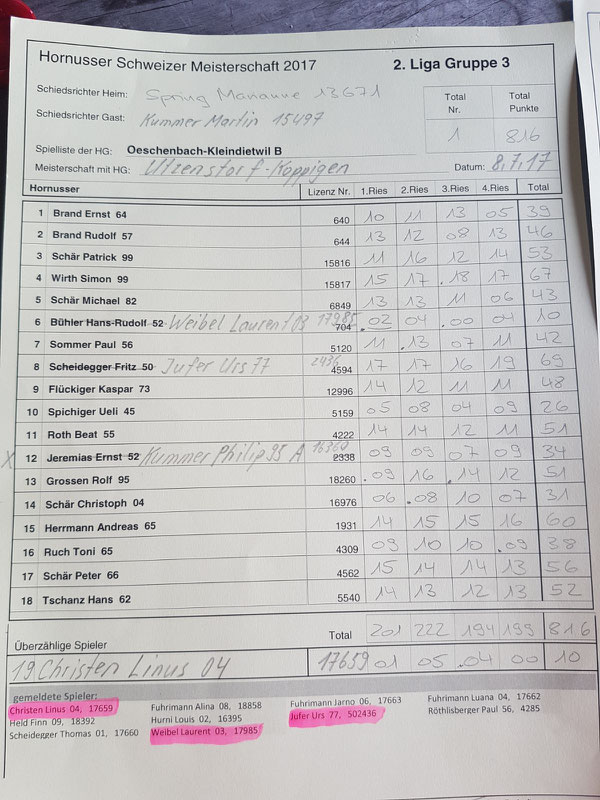 Hornusser Schweizer Meisterschaft 2017 2. Liga Gruppe 3
Schiedsrichter Heim: Spring Marianne 13671 Total Nr. Total Punkte
Schiedsrichter Gast: Kummer Martin 15497 1 816
Spielliste der HG: Oeschenbach-Kleindietwil B
Meisterschaft mit HG: Utzenstorf-Koppigen Datum: 8.7.17
Hornusser Lizenz Nr. 1.Ries 2.Ries 3.Ries 4.Ries Total
1 Brand Ernst 64 640 10 11 13 05 39
2 Brand Rudolf 57 644 13 12 08 13 46
3 Schär Patrick 99 15816 11 16 12 14 53
4 Wirth Simon 99 15817 15 17 .18 17 67
5 Schär Michael 82 6849 13 13 11 06 43
6 Bühler Hans-Rudolf 52 Weibel Laurent 03 17985 704 .02 04 .00 04 10
7 Sommer Paul 56 5120 11 .13 07 11 42
8 Scheidegger Fritz 50 Jufer Urs 77 2436 4594 17 17 16 19 69
9 Flückiger Kaspar 73 12996 14 12 11 11 48
10 Spichiger Ueli 45 5159 05 08 04 09 26
11 Roth Beat 55 4222 14 14 12 11 51
X 12 Jeremias Ernst 52 Kummer Philip 95 A 16360 2338 09 09 07 09 34
13 Grossen Rolf 95 18260 .09 16 .14 12 51
14 Schär Christoph 04 16976 06 .08 10 07 31
15 Herrmann Andreas 65 1931 14 15 15 16 60
16 Ruch Toni 65 4309 09 10 10 .09 38
17 Schär Peter 66 4562 15 14 14 13 56
18 Tschanz Hans 62 5540 14 13 12 13 52
Überzählige Spieler Total 201 222 194 199 816
19 Christen Linus 04 17659 01 05 .04 00 10
gemeldete Spieler:
Christen Linus 04, 17659 Fuhrimann Alina 08, 18858 Fuhrimann Jarno 06, 17663 Fuhrimann Luana 04, 17662
Held Finn 09, 18392 Hurni Louis 02, 16395 Jufer Urs 77, 502436 Röthlisberger Paul 56, 4285
Scheidegger Thomas 01, 17660 Weibel Laurent 03, 17985